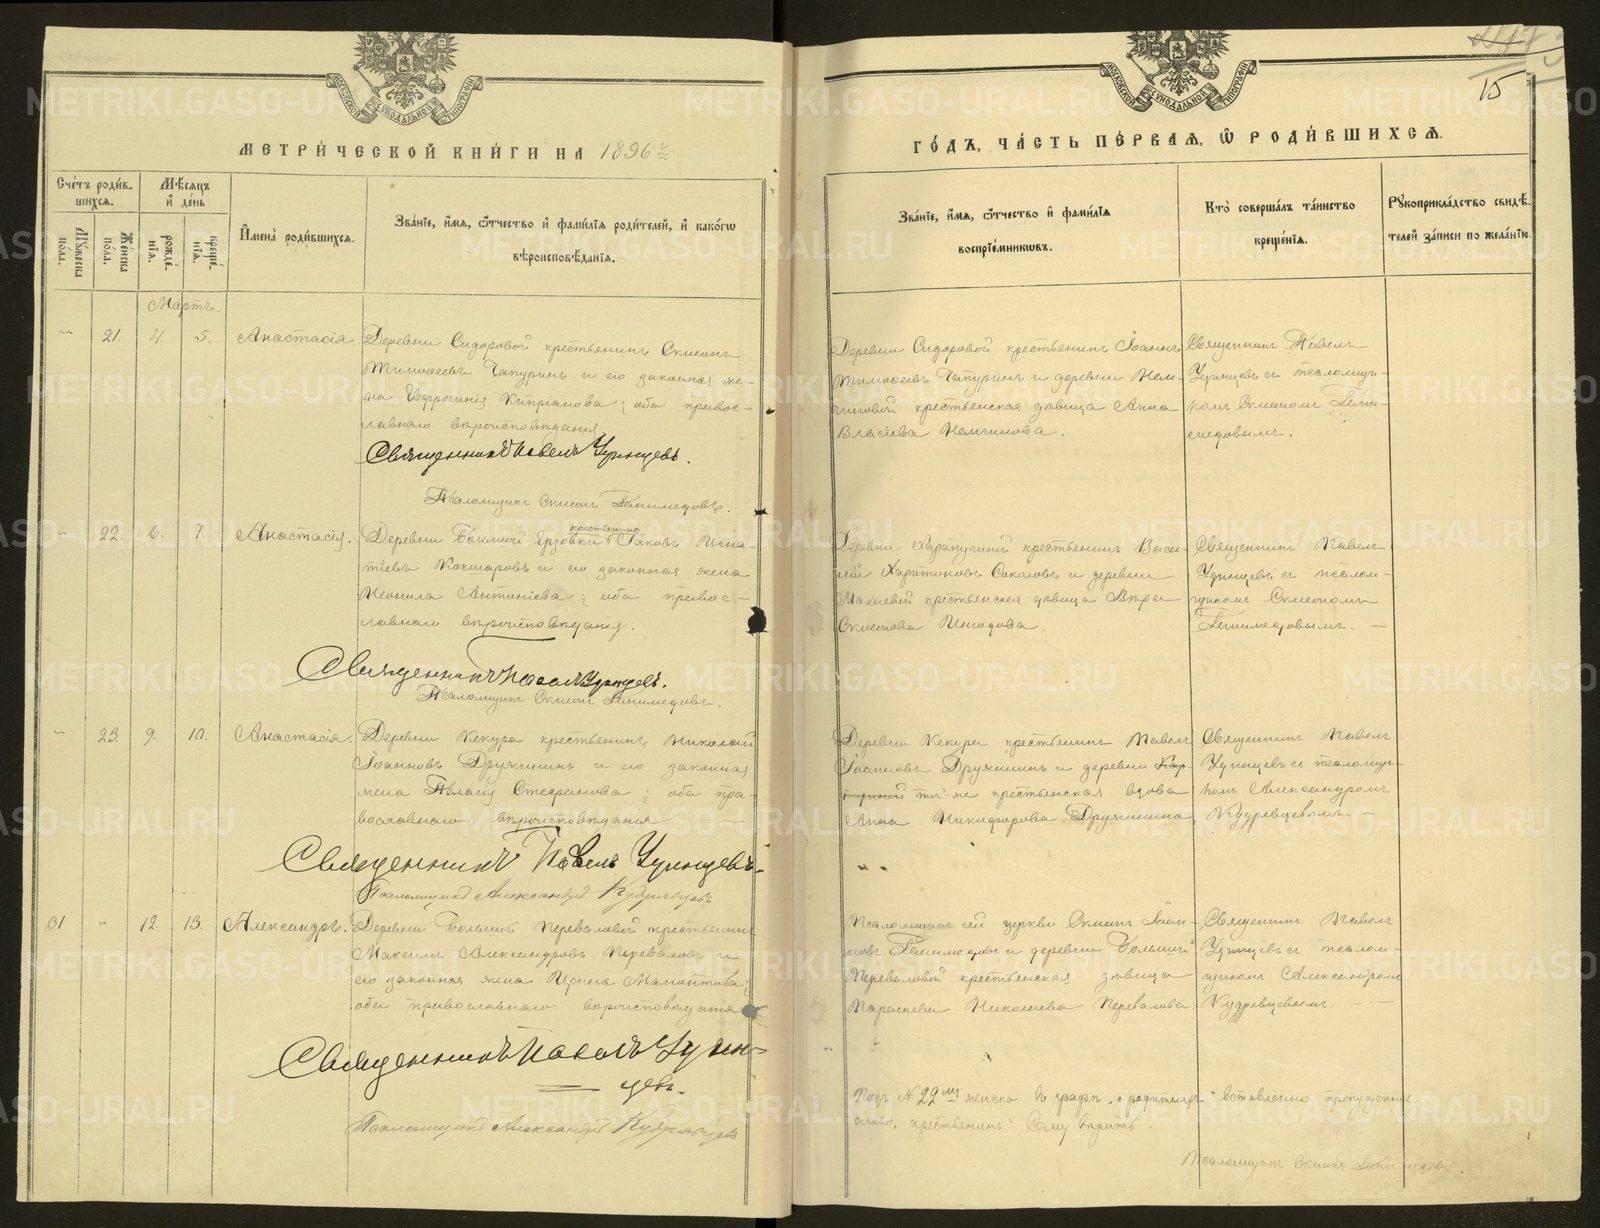 МЕТРИ́ЧЕСКОЙ КНИ́ГИ НА 1896й
ГО́ДЪ, ЧА́СТЬ ПЕ́РВАѦ, Ѽ РОДИ́ВШИХСѦ.
15
МОСКОВСКОЙ СУНОДАЛЬНОЙ ТИПОГРАФІИ
МОСКОВСКОЙ СУНОДАЛЬНОЙ ТИПОГРАФІИ
Сче́тъ роди́в-
шихсѧ.
Мꙋ́жеска по́ла.
Же́нска по́ла.
Мѣ́сѧцъ и҆ де́нь
рожде́нїѧ.
креще́нїѧ.
И҆мена̀ роди́вшихсѧ.
Зва́нїе, и҆́мѧ, ѻ҆́тчество и҆ фами́лїѧ роди́телей, и҆ како́гѡ
вѣроисповѣ́данїѧ.
Зва́нїе, и҆́мѧ, ѻ҆́тчество и҆ фами́лїѧ
воспрїе́мникѡвъ.
Кто̀ соверша́лъ та́инство
креще́нїѧ.
Рꙋкоприкла́дство свидѣ́-
телей за́писи по жела́нїю.
Мартъ.
" 21. 4. 5. Анастасія.
Деревни Сидоровой крестьянинъ Симеонъ
Тимоѳеевъ Чапуринъ и его законная же-
на Евфросинія Кипріанова; оба правос-
лавнаго вѣроисповѣданія
Священникъ Павелъ Удинцевъ.
Псаломщикъ Симеонъ
Деревни Сидоровой крестьянинъ Іоаннъ
Тимоѳеевъ Чапуринъ и деревни Нем-
чиновой крестьянская дѣвица Анна
Власіева Немчинова.
Священникъ Павелъ
Удинцевъ съ псаломщи-
комъ Симеономъ
" 22. 6. 7. Анастасія.
крестьянинъ
Деревни Большой Ерзовки Іаковъ Игна-
тіевъ Кокшаровъ и его законная жена
Неонила Антоніева; оба правос-
лавнаго вѣроисповѣданія.
Священникъ Павелъ Удинцевъ.
Псаломщикъ Симеонъ
Деревни крестьянинъ Васи-
лій Харитоновъ Соколовъ и деревни
Махневой крестьянская дѣвица Вѣра
Симеонова
Священникъ Павелъ
Удинцевъ съ псалом-
щикомъ Симеономъ
" 23. 9. 10. Анастасія.
Деревни Кекура крестьянинъ Николай
Іоанновъ Дружининъ и его законная
жена Пелагія Стефанова; оба пра-
вославнаго вѣроисповѣданія
Священникъ Павелъ Удинцевъ.
Псаломщикъ Александръ Кудрявцевъ
Деревни Кекура крестьянинъ Павелъ
Іоанновъ Дружининъ и деревни
той-же крестьянская вдова
Анна Никифорова Дружинина
Священникъ Павелъ
Удинцевъ съ псаломщи-
комъ Александромъ
Кудрявцевымъ.
31 " 12. 13. Александръ.
Деревни Большой Переваловой крестьянинъ
Максимъ Александровъ Переваловъ и
его законная жена Ирина Мамонтова;
оба православнаго вѣроисповѣданія
Священникъ Павелъ Удин-
цевъ.
Псаломщикъ Александръ Кудрявцевъ
Псаломщикъ сей церкви Симеонъ Іоан-
новъ и деревни Большой
Переваловой крестьянская дѣвица
Параскева Николаева Перевалова
Священникъ Павелъ
Удинцевъ съ псалом-
щикомъ Александромъ
Кудрявцевымъ.
Подъ № 22мъ женска въ графѣ „о родителяхъ" вставленно пропущенное
слово „крестьянинъ" Сему вѣрить.
Псаломщикъ Симеонъ
METRIKI.GASO-URAL.RU